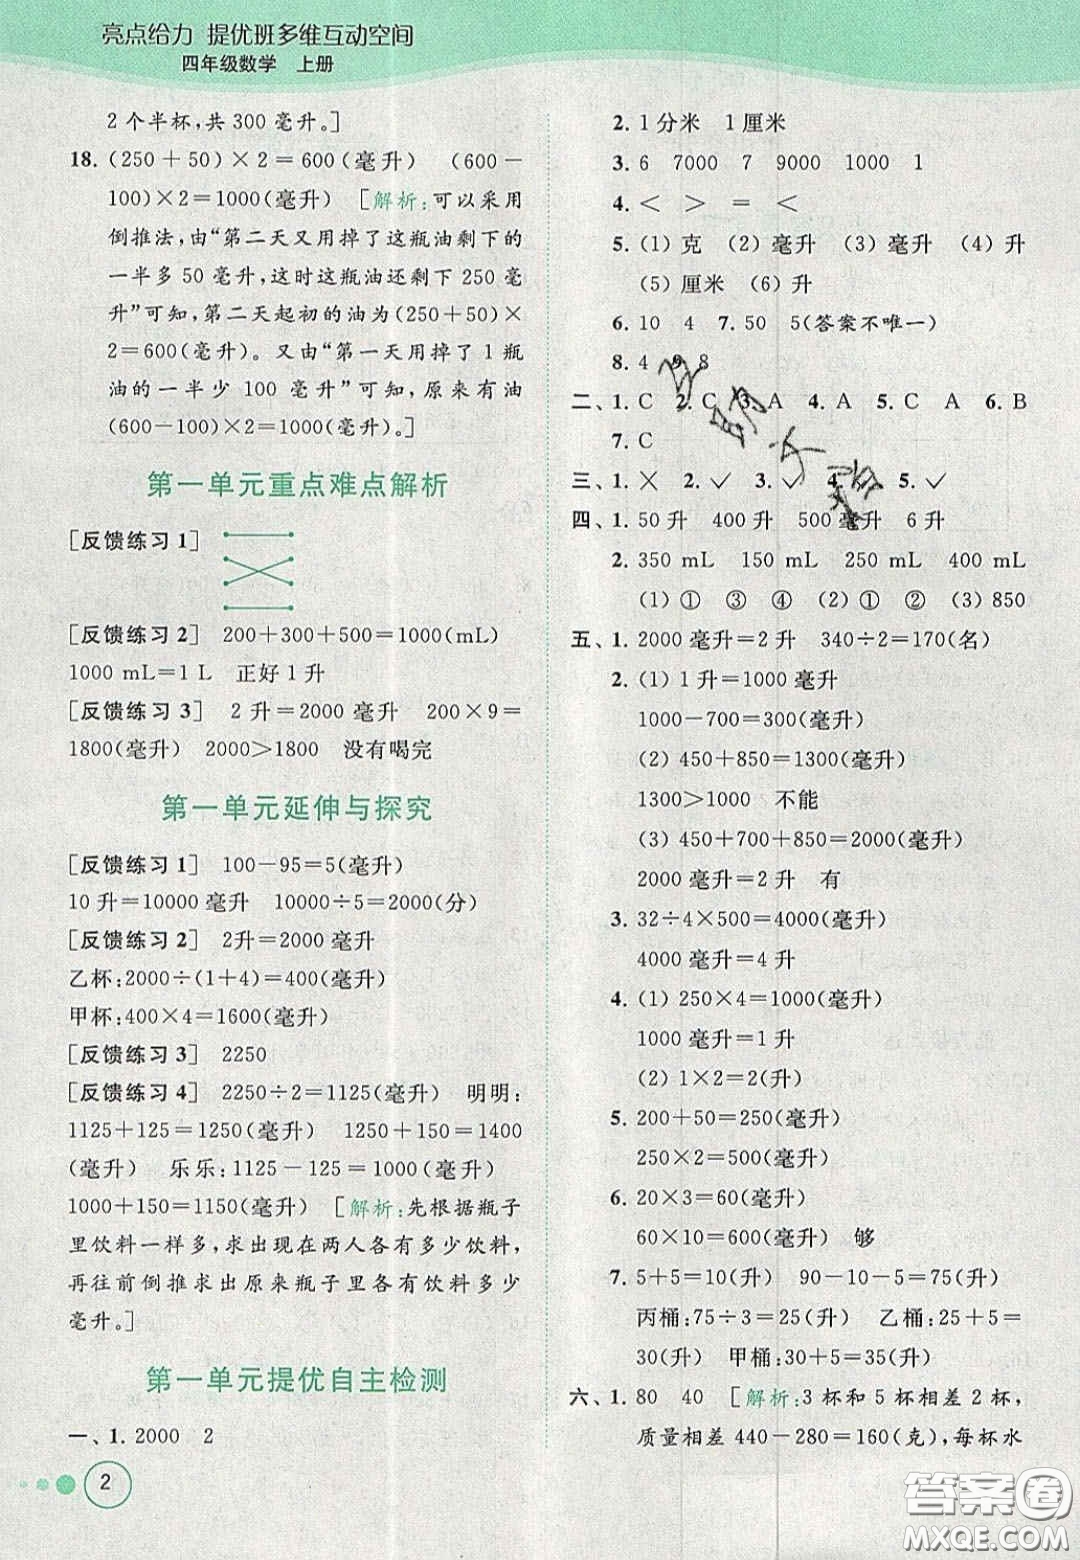 亮点给力 提优班多维互动空间
四年级数学 上册
2 个半杯,共 300 毫升。]
18. (250+50)×2=600(毫升) (600-
100)×2=1000(毫升) [解析:可以采用
倒推法,由“第二天又用掉了这瓶油剩下的
一半多 50 毫升,这时这瓶油还剩下 250 毫
升”可知,第二天起初的油为(250+50)×
2=600(毫升)。又由“第一天用掉了 1 瓶
油的一半少 100 毫升”可知,原来有油
(600-100)×2=1000(毫升)。]
第一单元重点难点解析
[反馈练习 1]
[反馈练习 2] 200+300+500=1000(mL)
1000 mL=1 L 正好 1 升
[反馈练习 3] 2 升=2000 毫升 200×9=
1800(毫升) 2000>1800 没有喝完
第一单元延伸与探究
[反馈练习 1] 100-95=5(毫升)
10 升=10000 毫升 10000÷5=2000(分)
[反馈练习 2] 2升=2000 毫升
乙杯:2000÷(1+4)=400(毫升)
甲杯:400×4=1600(毫升)
[反馈练习 3] 2250
[反馈练习 4] 2250÷2=1125(毫升) 明明:
1125+125=1250(毫升) 1250+150=1400
(毫升) 乐乐:1125-125=1000(毫升)
1000+150=1150(毫升) [解析:先根据瓶子
里饮料一样多,求出现在两人各有多少饮料,
再往前倒推求出原来瓶子里各有饮料多少
毫升。]
第一单元提优自主检测
一、1. 2000 2
2
2. 1 分米 1 厘米
3. 6 7000 7 9000 1000 1
4. < > = <
5. (1) 克 (2) 毫升 (3) 毫升 (4) 升
(5) 厘米 (6) 升
6. 10 4 7. 50 5(答案不唯一)
8. 4 9. 8
二、1. C 2. C 3. A 4. A 5. C A 6. B
7. C
三、1. × 2. ✓ 3. ✓ 4. 5. ✓
四、1. 50 升 400 升 500 毫升 6 升
2. 350 mL 150 mL 250 mL 400 mL
(1) ① ③ ④ (2) ① ② (3) 850
五、1. 2000 毫升=2 升 340÷2=170(名)
2. (1) 1 升=1000 毫升
1000-700=300(毫升)
(2) 450+850=1300(毫升)
1300>1000 不能
(3) 450+700+850=2000(毫升)
2000 毫升=2 升 有
3. 32÷4×500=4000(毫升)
4000 毫升=4 升
4. (1) 250×4=1000(毫升)
1000 毫升=1 升
(2) 1×2=2(升)
5. 200+50=250(毫升)
250×2=500(毫升)
6. 20×3=60(毫升)
60×10=600(毫升) 够
7. 5+5=10(升) 90-10-5=75(升)
丙桶:75÷3=25(升) 乙桶:25+5=
30(升) 甲桶:30+5=35(升)
六、1. 80 40 [解析:3 杯和 5 杯相差 2 杯,
质量相差 440-280=160(克),每杯水
答案圈
MXQE.COM